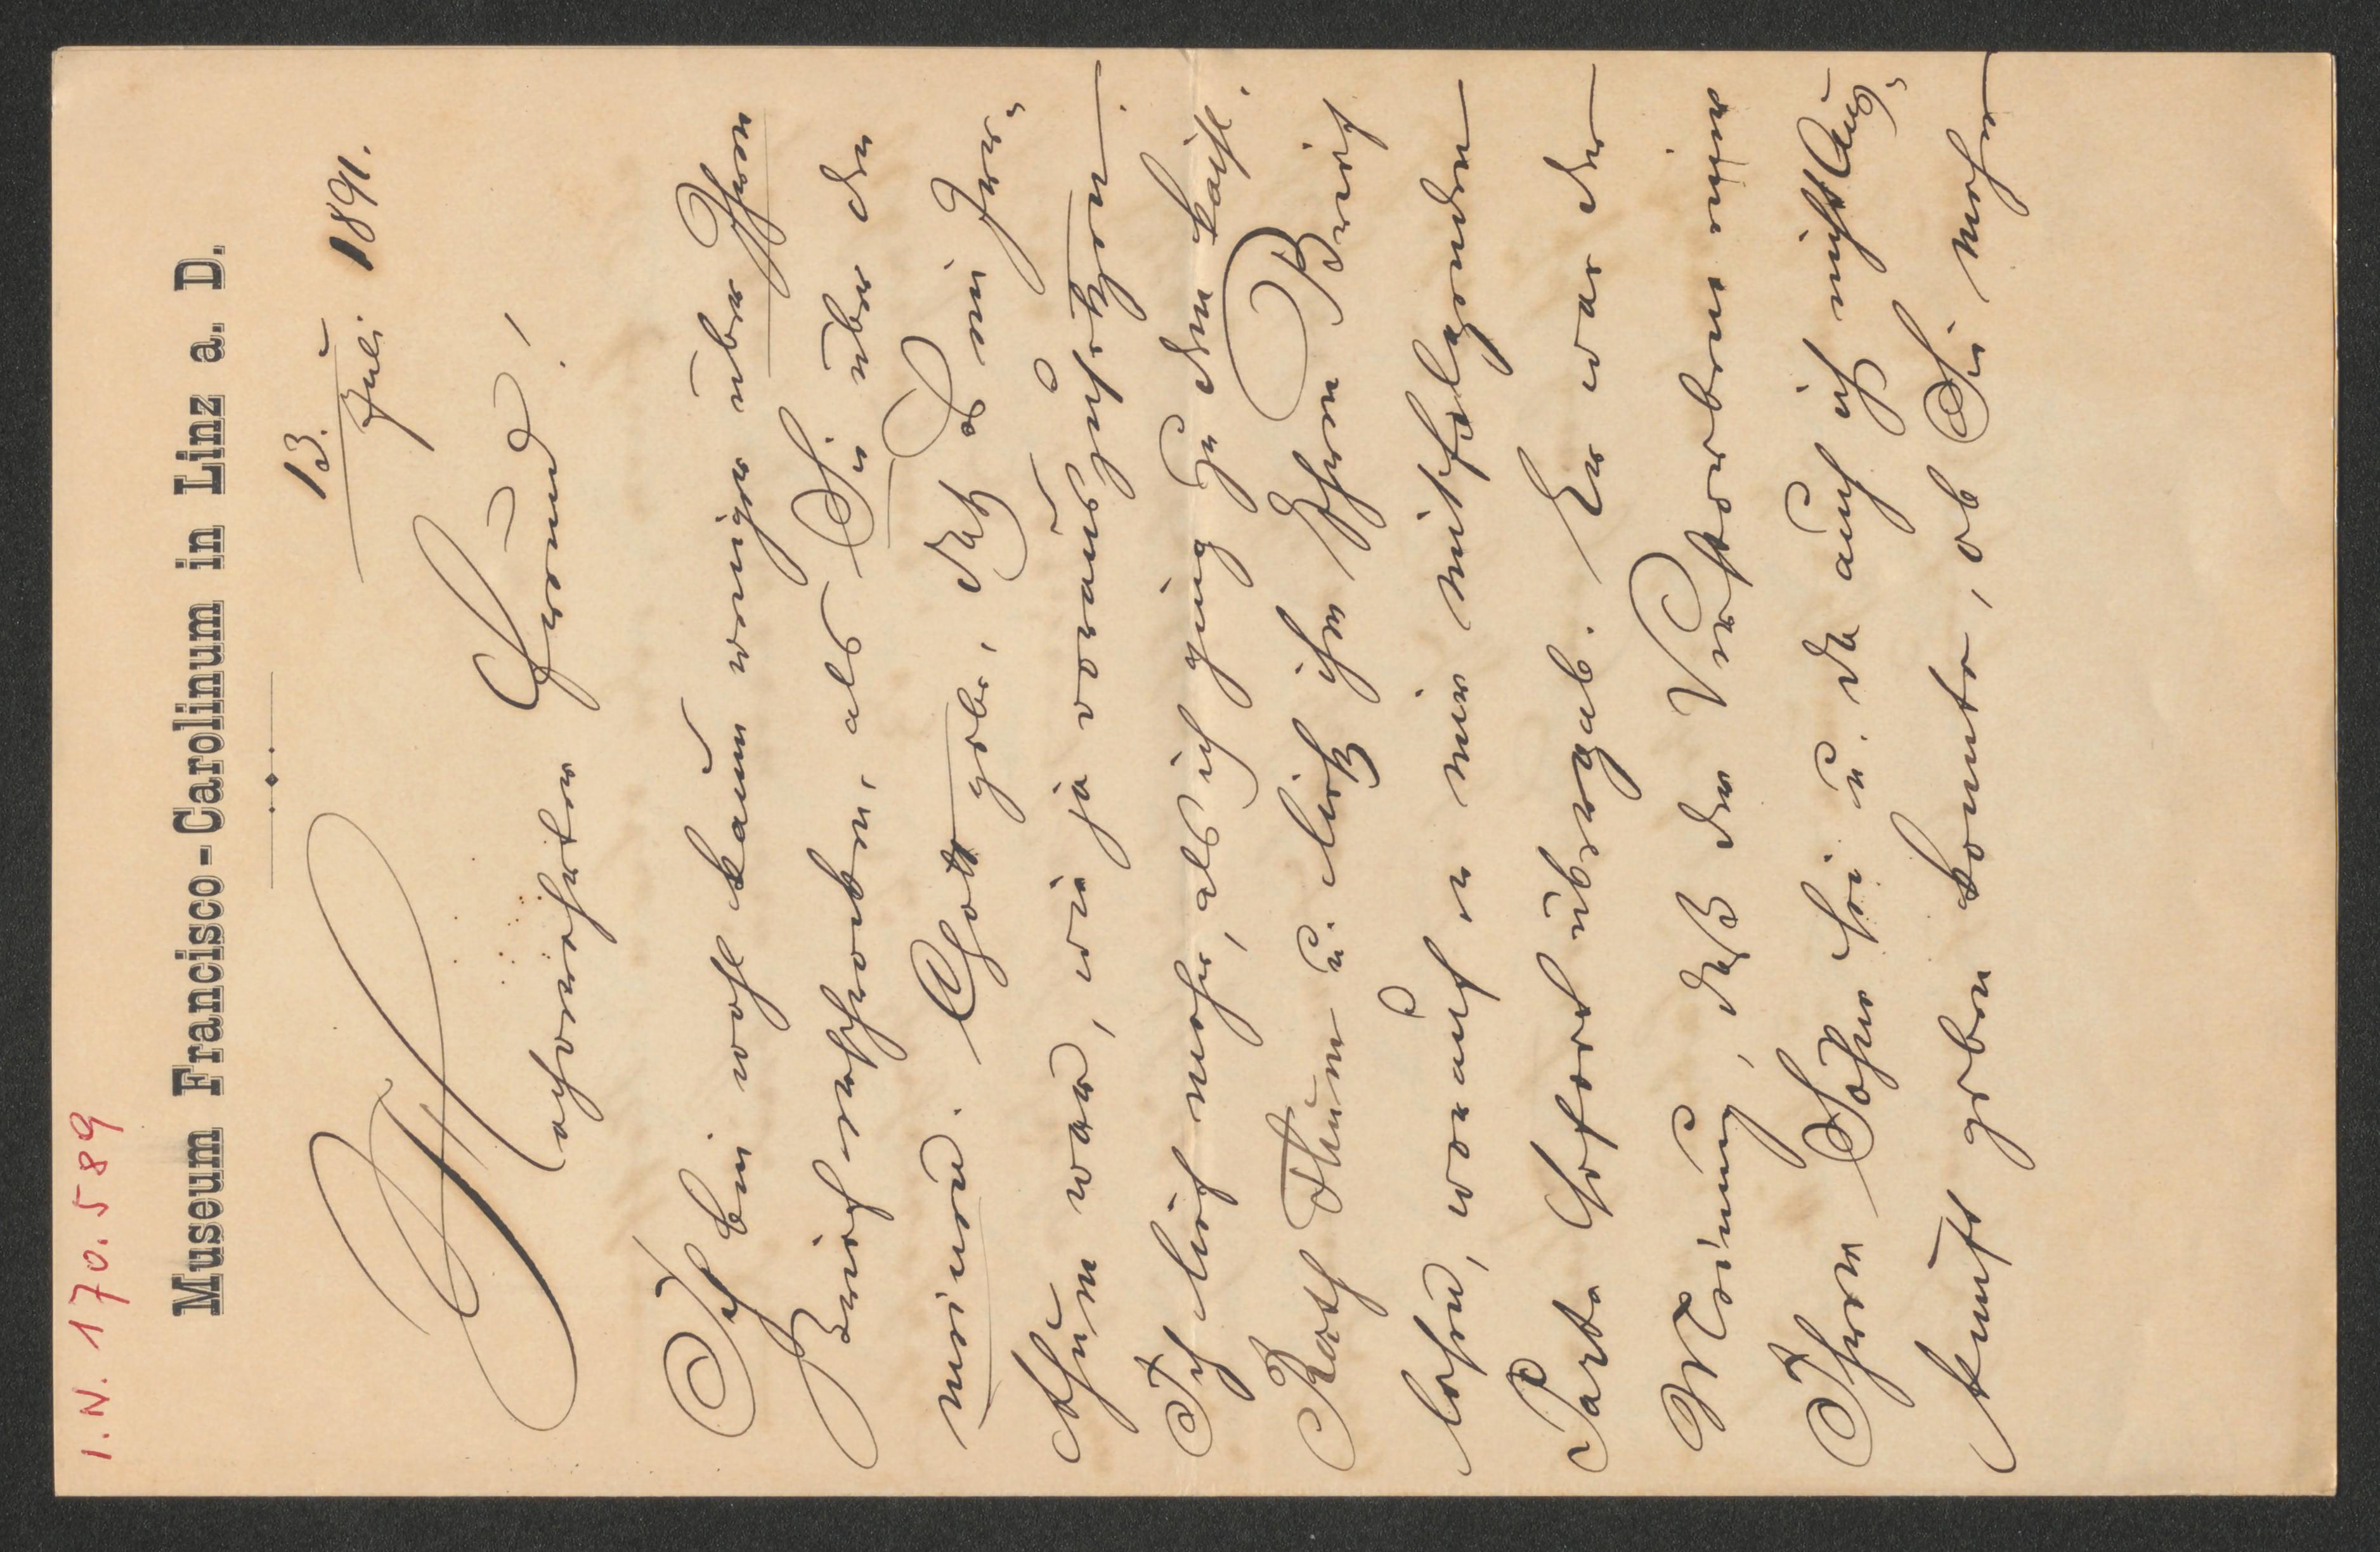 I.N. 170.589
Museum Francisco-Carolinum in Linz a. D.
13. Juli 1891.
Hochverehrter Freund!
Ich bin wohl kaum weniger über Ihren
Brief erschrocken, als Sie über den
meinen. Gott gebe, daß es ein Irr-
thum war, wie ja vorauszusetzen.
Ich lief mehr, als ich ging zu dem kaiserl.
Rath Thum u. ließ ihm Ihren Brief
lesen, worauf er mir mitfolgenden
Parte sofort übergab. Er war der
Meinung, daß der Verstorbene einer
Ihrer Söhne sei u. da auch ich nicht Aus-
kunft geben konnte, ob Sie mehre